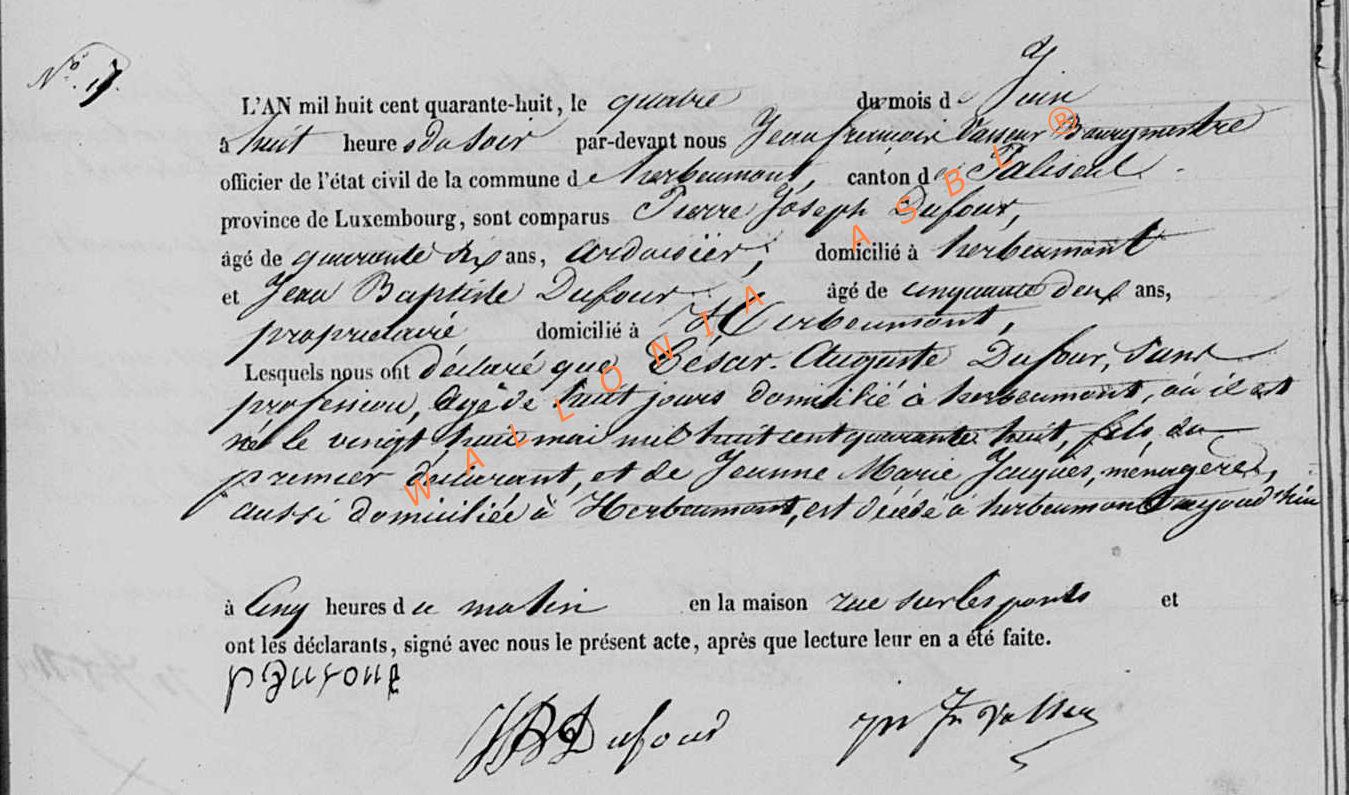 No. 17.
L'AN mil huit cent quarante-huit, le quatre du mois de Juin
à huit heures du soir par-devant nous Jean françois Vasseur Bourgmestre
officier de l'état civil de la commune de herbeumont, canton de Paliseul
province de Luxembourg, sont comparus Pierre Joseph Dufour,
âgé de quarante dix ans, ardoisier, domicilié à herbeumont
et Jean Baptiste Dufour âgé de cinquante deux ans,
propriétaire domicilié à Herbeumont,
Lesquels nous ont déclaré que César Auguste Dufour, sans
profession, âgé de huit jours domicilié à herbeumont, où il est
né le vingt huit mai mil huit cent quarante huit, fils du
premier déclarant, et de Jeanne Marie Jacques, ménagère,
aussi domiciliée à Herbeumont, est décédé à herbeumont aujourd'hui
à cinq heures du matin en la maison rue sur les ponts et
ont les déclarants, signé avec nous le présent acte, après que lecture leur en a été faite.
P Dufour
JB Dufour
WALLONIA ASBL ®